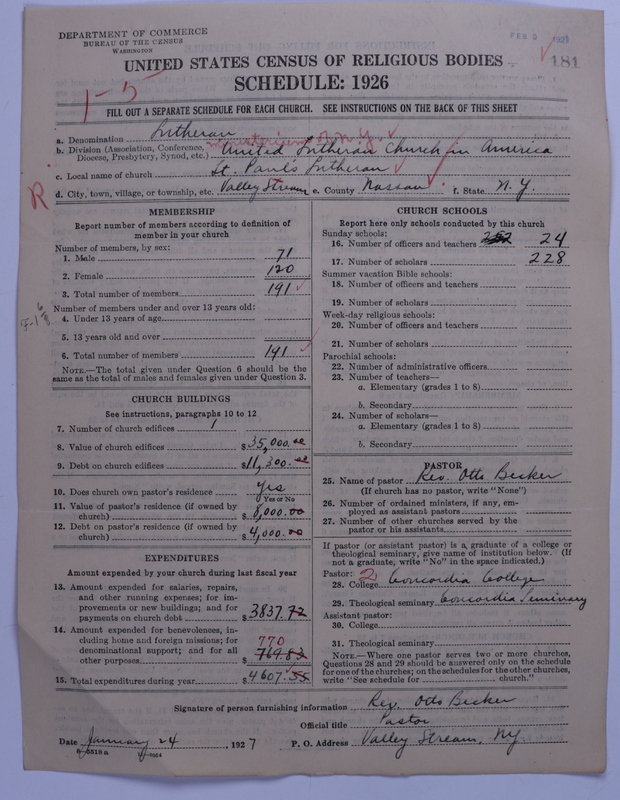 DEPARTMENT OF COMMERCE
BUREAU OF THE CENSUS
WASHINGTON
FEB 3 1927
181
UNITED STATES CENSUS OF RELIGIOUS BODIES
SCHEDULE: 1926
1-5
FILL OUT A SEPARATE SCHEDULE FOR EACH CHURCH. SEE INSTRUCTIONS ON THE BACK OF THIS SHEET
a. Denomination Lutheran
Ministerium of N.Y.
b. Division (Association, Conference, Diocese, Presbytery, Synod, etc.) United Lutheran Church in America
c. Local name of church St. Pauls Lutheran
d. City, town, village, or township, etc. Valley Stream e. County Nassau f. State N.Y.
R
MEMBERSHIP
Report number of members according to definition of
member in your church
Number of members, by sex:
1. Male 71
2. Female 120
3. Total number of members 191
Number of members under and over 13 years old:
4. Under 13 years of age
5. 13 years old and over
6. Total number of members 191
NOTE.—The total given under Question 6 should be the
same as the total of males and females given under Question 3.
CHURCH BUILDINGS
See instructions, paragraphs 10 to 12
7. Number of church edifices 1
8. Value of church edifices $35,000.00
9. Debt on church edifices $11,300.00
10. Does church own pastor's residence Yes
Yes or No
11. Value of pastor's residence (if owned by
church) $8,000.00
12. Debt on pastor's residence (if owned by
church) $4,000.00
EXPENDITURES
Amount expended by your church during last fiscal year
13. Amount expended for salaries, repairs,
and other running expenses; for im-
provements or new buildings; and for
payments on church debt $3837.72
14. Amount expended for benevolences, in-
cluding home and foreign missions; for
denominational support; and for all
other purposes $769.83
770
15. Total expenditures during year $4607.55
CHURCH SCHOOLS
Report here only schools conducted by this church
Sunday schools:
16. Number of officers and teachers 24
17. Number of scholars 228
Summer vacation Bible schools:
18. Number of officers and teachers
19. Number of scholars
Week-day religious schools:
20. Number of officers and teachers
21. Number of scholars
Parochial schools:
22. Number of administrative officers
23. Number of teachers—
a. Elementary (grades 1 to 8)
b. Secondary
24. Number of scholars—
a. Elementary (grades 1 to 8)
b. Secondary
PASTOR
25. Name of pastor Rev. Otto Becker
(If church has no pastor, write "None")
26. Number of ordained ministers, if any, em-
ployed as assistant pastors
27. Number of other churches served by the
pastor or his assistants
If pastor (or assistant pastor) is a graduate of a college or
theological seminary, give name of institution below. (If
not a graduate, write "No" in the space indicated.)
Pastor: 2
28. College Concordia College
29. Theological seminary Concordia Seminary
Assistant pastor:
30. College
31. Theological seminary
NOTE.—Where one pastor serves two or more churches,
Questions 28 and 29 should be answered only on the schedule
for one of the churches; on the schedules for the other churches,
write "See schedule for church."
Signature of person furnishing information Rev. Otto Becker
Official title Pastor
Date January 24, 1927 P. O. Address Valley Stream, N.Y.